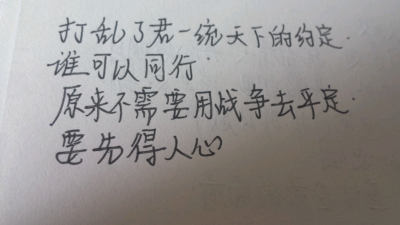 打乱了君一统天下的约定.
谁可以同行.
原来不需要用战争去平定.
要先得人心